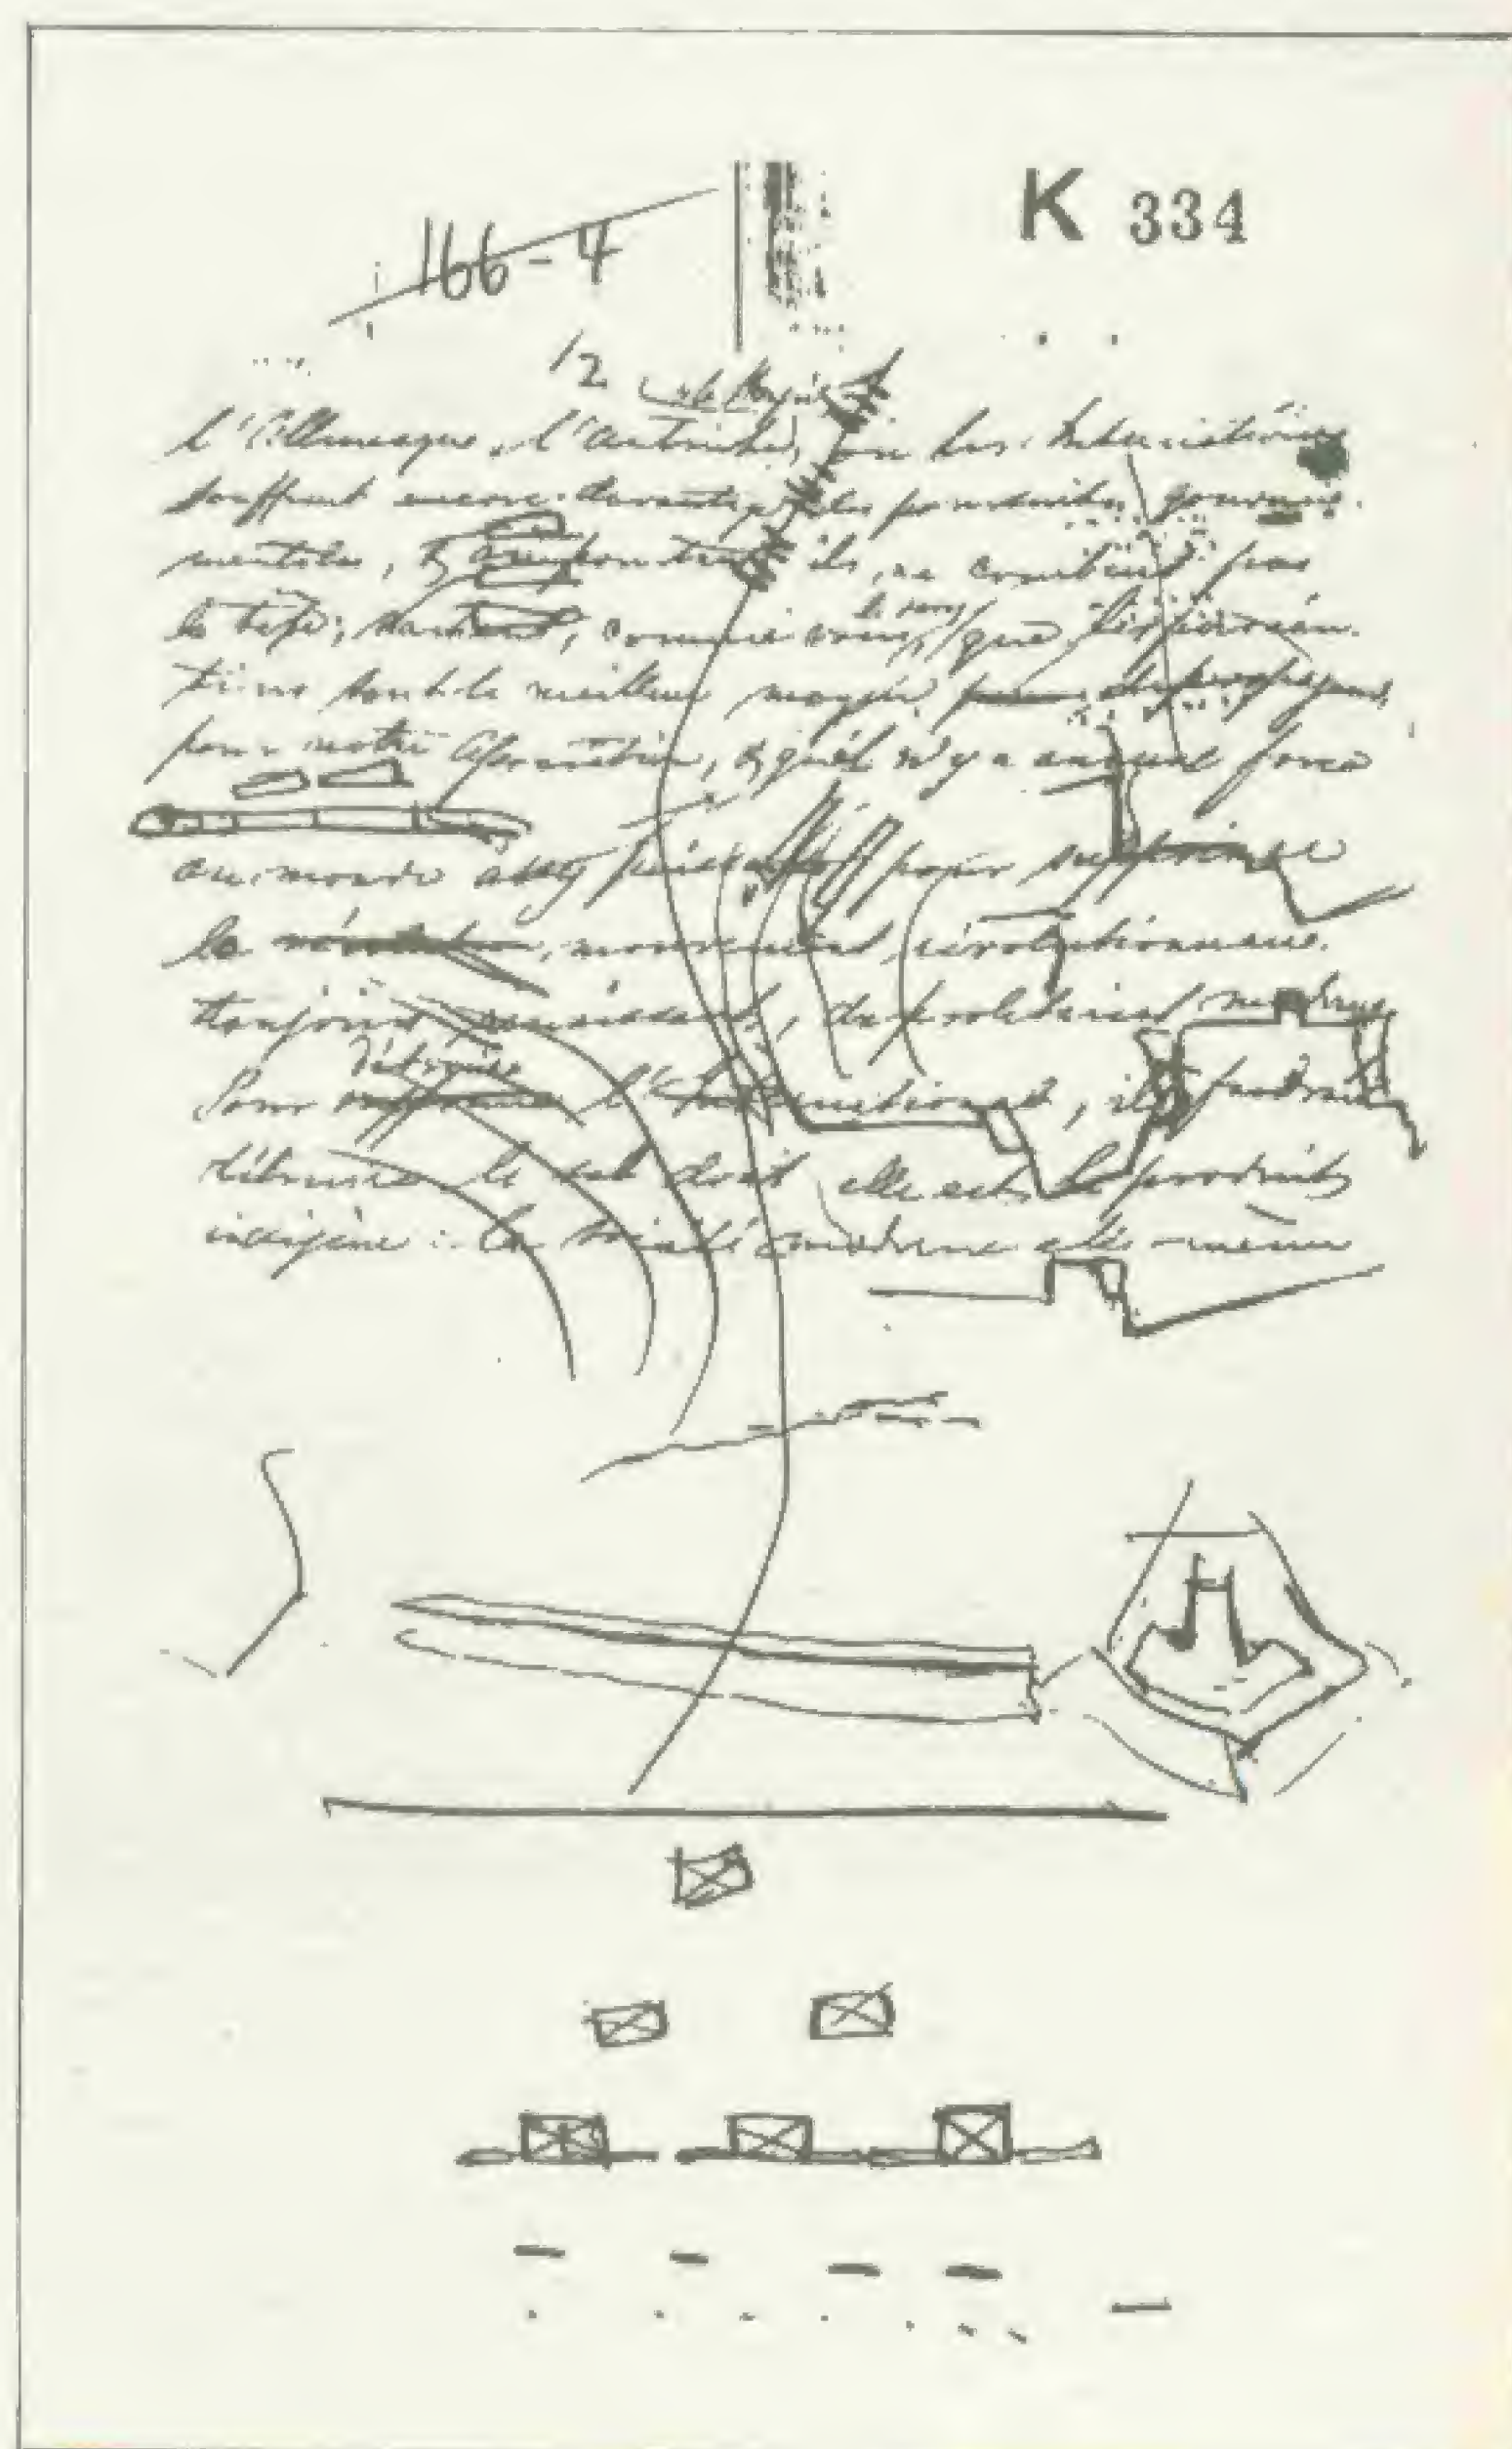 K 334
166-4
12
l'Allemagne, l'Autriche, où les Internationaux
souffrent encore davantage des poursuites gouverne-
mentales, & ils ne courbent pas
la tête; sachant, comme vous, que les persécu-
tions sont le meilleur moyen pour de propagande
pour notre Association, & qu'il n'y a aucune force
au monde assez puissante pour supprimer
le révolution, mouvement révolutionnaire
toujours renaissant, du prolétariat moderne
détruire
Pour supprimer l'International, il faudrait
détruire le sol dont elle est le produit
indigène : la société moderne elle-même